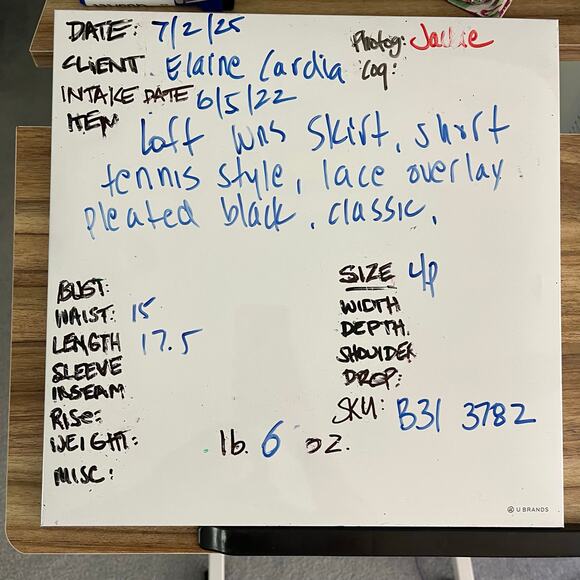 DATE: 7/2/25
Photog: Jackie
CLIENT Elaine Cardia
Log:
INTAKE DATE 6/5/22
ITEM
Loft wns skirt, short
tennis style, lace overlay
pleated black. classic.
BUST:
WAIST: 15
LENGTH 17.5
SLEEVE
INSEAM
RISE:
WEIGHT: lb. 6 oz.
MISC:
SIZE 4p
WIDTH
DEPTH.
SHOULDER
DROP:
SKU: B31 3782
U BRANDS